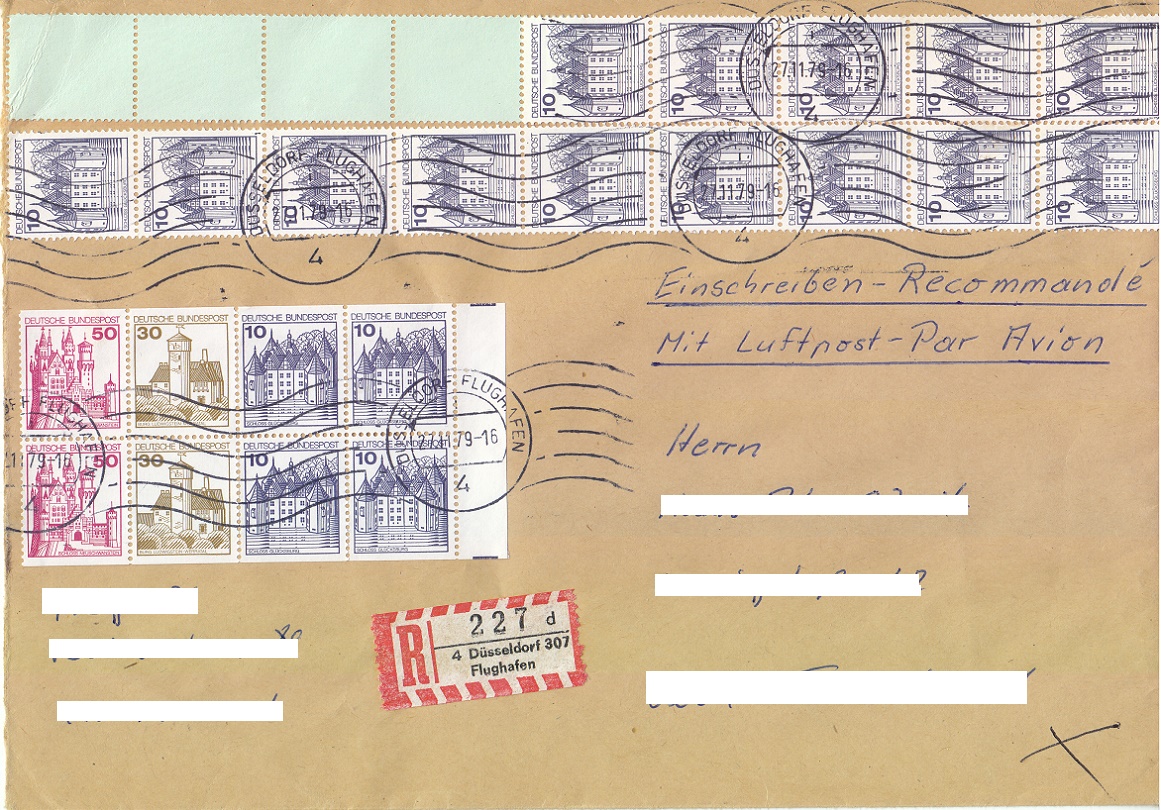 DEUTSCHE BUNDESPOST 10
DEUTSCHE BUNDESPOST 10
DEUTSCHE BUNDESPOST 10
DEUTSCHE BUNDESPOST 10
DEUTSCHE BUNDESPOST 10
DÜSSELDORF FLUGHAFEN
27.11.79-16
4
DEUTSCHE BUNDESPOST 10
DEUTSCHE BUNDESPOST 10
DEUTSCHE BUNDESPOST 10
DEUTSCHE BUNDESPOST 10
DEUTSCHE BUNDESPOST 10
DEUTSCHE BUNDESPOST 10
DEUTSCHE BUNDESPOST 10
DEUTSCHE BUNDESPOST 10
DEUTSCHE BUNDESPOST 10
DÜSSELDORF FLUGHAFEN
27.11.79-16
4
DÜSSELDORF FLUGHAFEN
27.11.79-16
4
Einschreiben - Recommandé
Mit Luftpost - Par Avion
DEUTSCHE BUNDESPOST
50
DEUTSCHE BUNDESPOST
30
DEUTSCHE BUNDESPOST
10
SCHLOSS GLÜCKSBURG
DEUTSCHE BUNDESPOST
10
SCHLOSS GLÜCKSBURG
DEUTSCHE BUNDESPOST
50
SCHLOSS NEUSCHWANSTEIN
DEUTSCHE BUNDESPOST
30
DEUTSCHE BUNDESPOST
10
SCHLOSS GLÜCKSBURG
DEUTSCHE BUNDESPOST
10
SCHLOSS GLÜCKSBURG
FLUGHAFEN
79-16
4
DÜSSELDORF FLUGHAFEN
27.11.79-16
4
Herrn
R
227 d
4 Düsseldorf 307
Flughafen